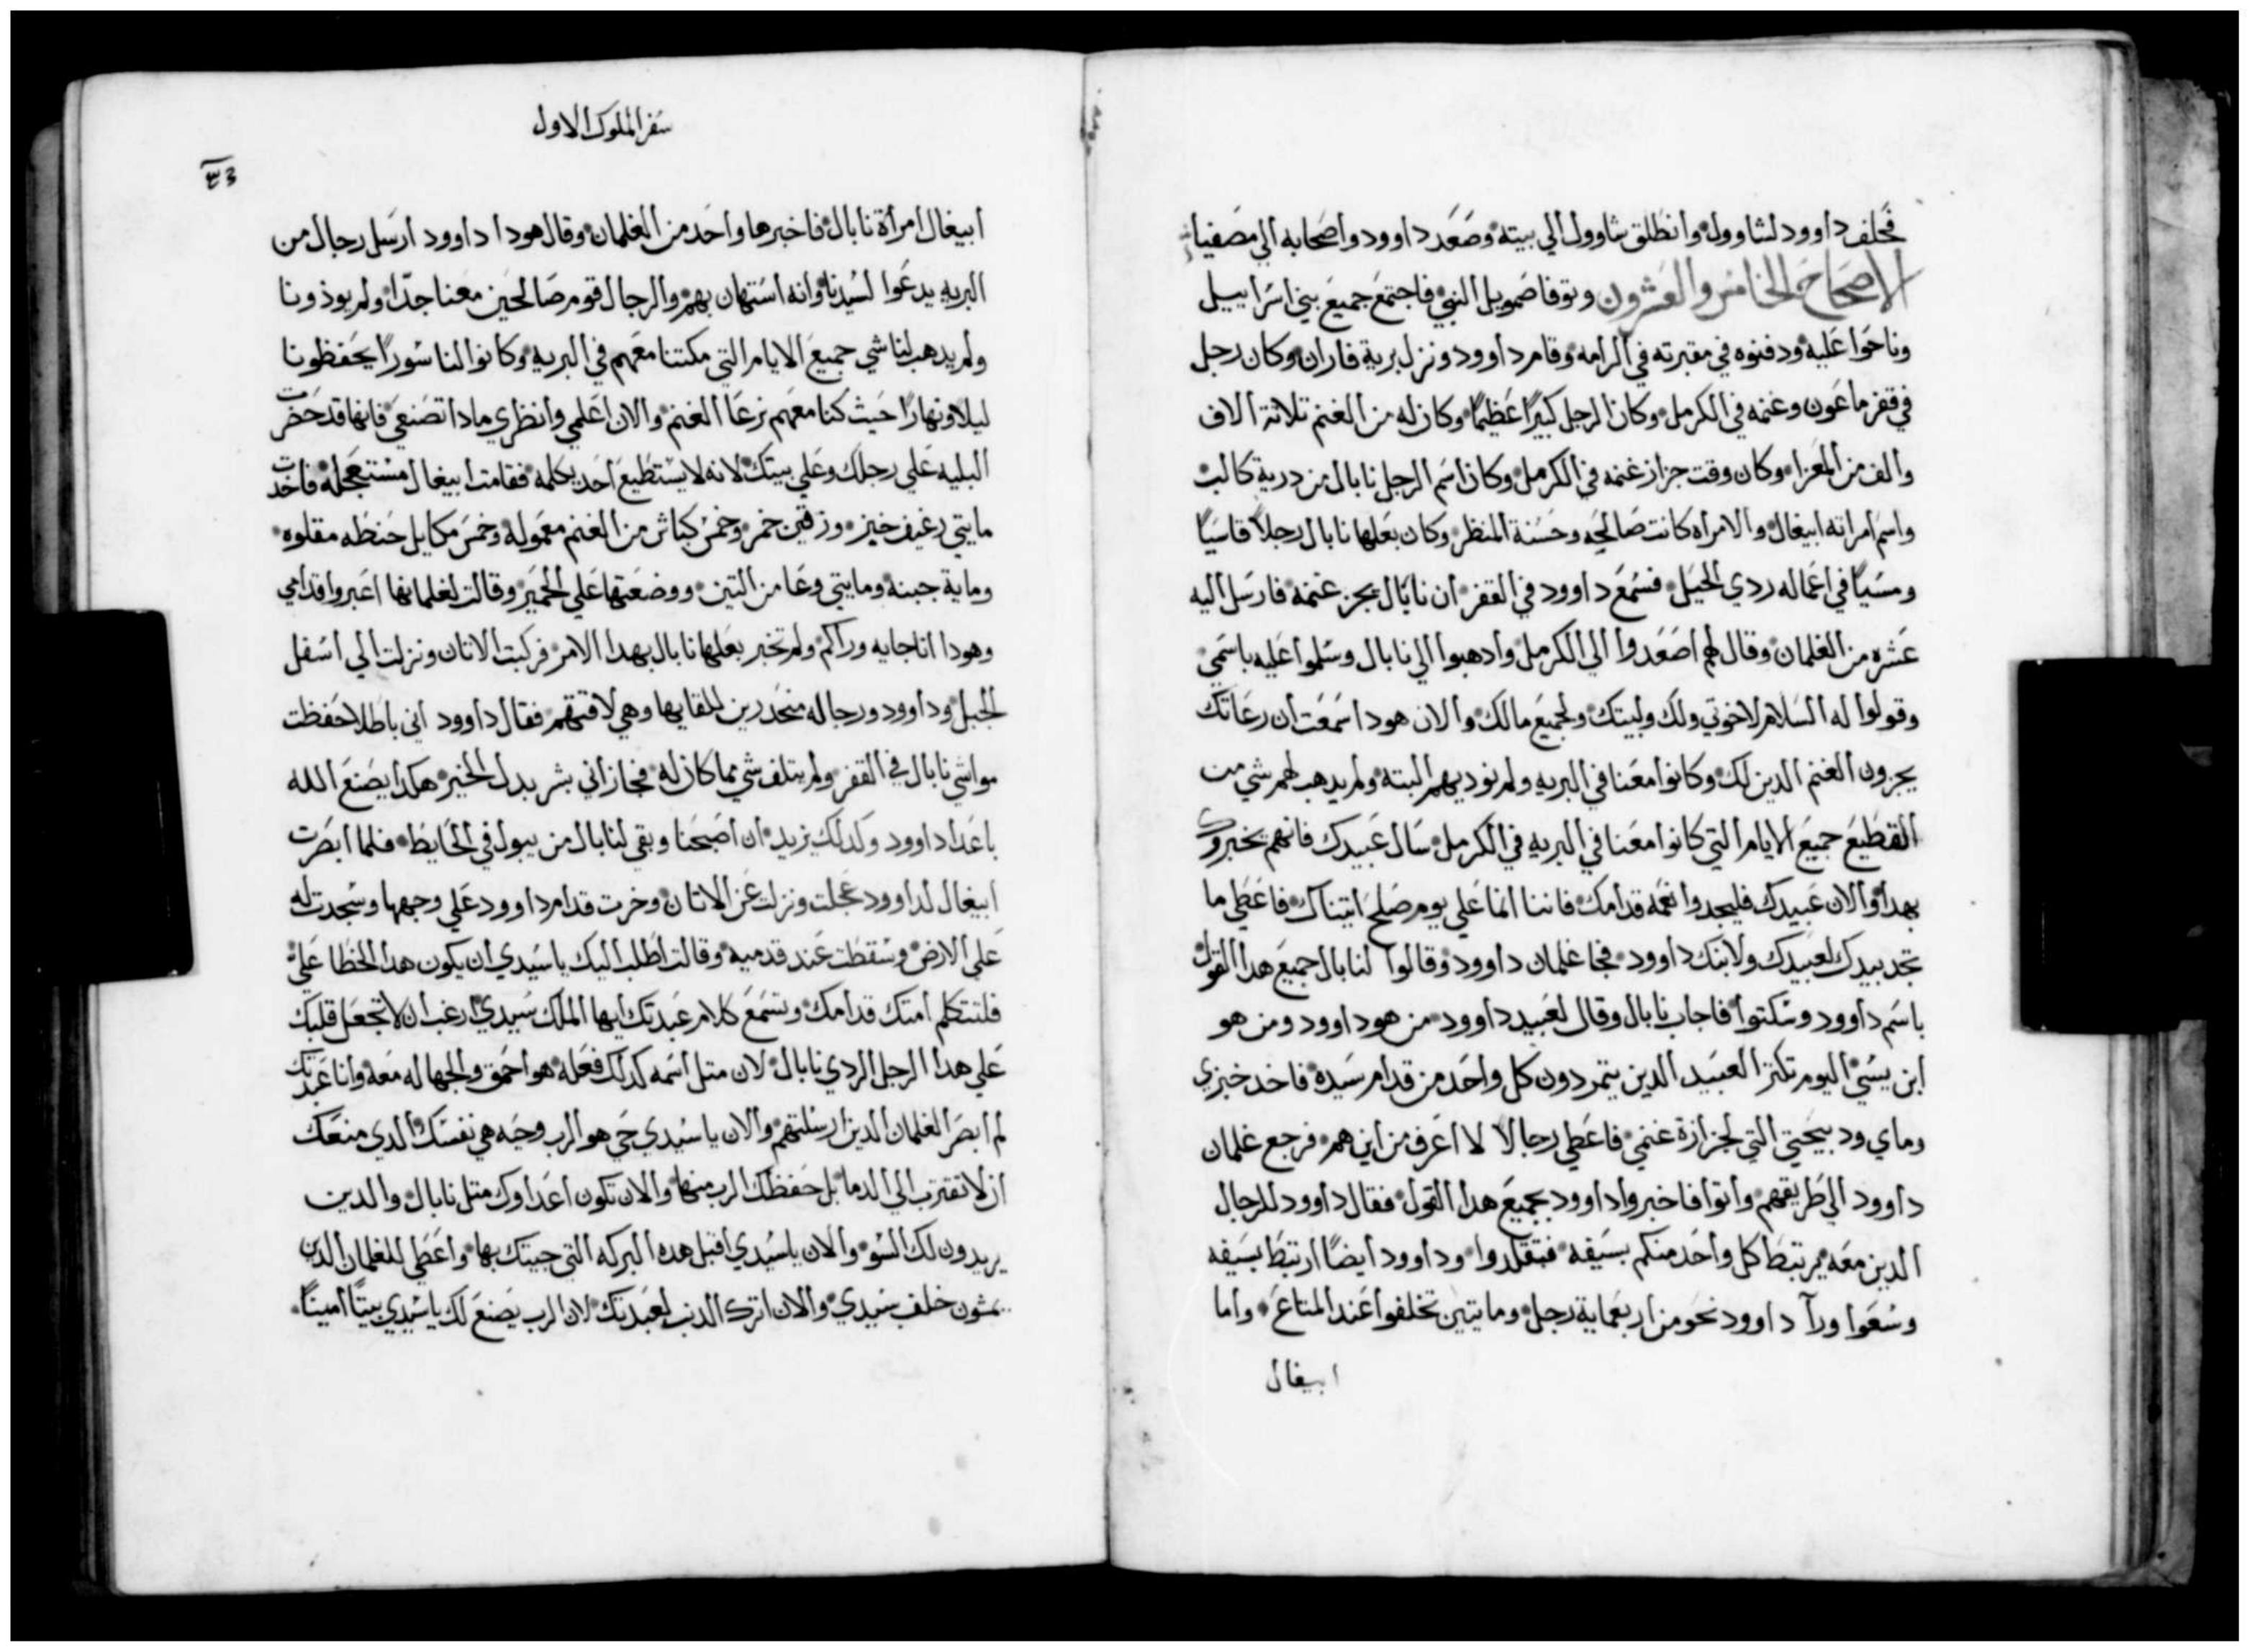 فحلف داوود لشاوول وانطلق شاوول الي بيته وصَعَد داوود واصحابه الي مصفيا
الاصحاح الخامس والعشرون وتوفا صمويل النبي فاجتمع جميع بني اسراييل
وناحَوا عليه ودفنوه في مقبرته في الرامه وقام داوود ونزل برية فاران وكان رجل
في قفر ماعون وغنمه في الكرمل وكان الرجل كبيرًا عظيمًا وكان له من الغنم تلاتة الاف
والف من المعزا وكان وقت جزاز غنمه في الكرمل وكان اسم الرجل نابال من درية كالب
واسم امراته ابيغال والامراه كانت صالحَه وحسنة المنظر وكان بعلها نابال رجلاً قاسيًا
ومسيًا في اعماله ردي الحيَل فسمع داوود في القفر ان نابال يجز غنمه فارسل اليه
عشره من الغلمان وقال لهم اصعدوا الي الكرمل وادهبوا الي نابال وسلموا عليه باسمي
وقولوا له السلام لاخوتي ولك ولبيتك ولجميع مالك والان هودا سمعت ان رعاتك
يجزون الغنم الدين لك وكانوا معنا في البريه ولم نوديهم البته ولم يدهب لهم شي من
القطيع جميع الايام التي كانوا معنا في البريه في الكرمل سال عبيدك فانهم يخبروك
بهدا والان عبيدك فليجدوا نعمه قدامك فاننا انما علي يوم صلح اتيناك فاعطي ما
تجد بيدك لعبيدك ولابنك داوود فجا غلمان داوود وقالوا لنابال جميع هدا القول
باسم داوود وسكتوا فاجاب نابال وقال لعبيد داوود من هو داوود ومن هو
ابن يسي اليوم تكتر العبيد الدين يتمردون كل واحد من قدام سيده فاخد خبزي
وماي ودبيحتي التي لجزازة غنمي فاعطي رجالا لا اعرف من اين هم فرجع غلمان
داوود الي طريقهم واتوا فاخبروا داوود بجميع هدا القول فقال داوود للرجال
الدين معه يرتبط كل واحد منكم بسيفه فتقلدوا وداوود ايضًا ارتبط بسيفه
وسعوا ورآ داوود نحو من اربعماية رجل ومايتين تخلفوا عند المتاع واما
ابيغال
سفر الملوك الاول
ابيغال امرأة نابال فاخبرها واحد من الغلمان وقال هودا داوود ارسل رجال من
البريه يدعوا لسيدنا وانه استهان بهم والرجال قوم صالحين معنا جدًا ولم يوذونا
ولم يدهب لنا شي جميع الايام التي مكتنا معهم في البريه وكانوا لنا سورًا يحفظونا
ليلا ونهارًا حيث كنا معهم نرعا الغنم والان اعلمي وانظري مادا تصنعي فانها قد حضرت
البليه علي رجلك وعلي بيتك لانه لا يستطيع احد يكلمه فقامت ابيغال مستعجله فاخدت
مايتي رغيف خبز وزقين خمر وخمس كباش من الغنم معموله وخمس مكاييل حنطه مقلوه
وماية جبنه ومايتي وعا من التين ووضعتها علي الحمير وقالت لغلمانها اعبروا قدامي
وهودا اناجايه وراكم ولم تخبر بعلها نابال بهدا الامر فركبت الاتان ونزلت الي اسفل
الجبل وداوود ورجاله منحدرين للقايها وهي لاقتهم فقال داوود اني باطلا حفظت
مواشي نابال في القفر ولم يتلف شي مما كان له فجازاني بشر بدل الخير هكدا يصنع الله
باعدا داوود وكدلك يزيد ان اصبحنا وبقي لنابال من يبول في الحايط فلما ابصرت
ابيغال لداوود عجلت ونزلت عن الاتان وخرت قدام داوود علي وجهها وسجدت له
علي الارض وسقطت عند قدميه وقالت اطلب اليك يا سيدي ان يكون هدا الخطا علي
فلتتكلم امتك قدامك وتسمع كلام عبدتك ايها الملك سيدي ارغب ان لا تجعل قلبك
علي هدا الرجل الردي نابال لان متل اسمه كدلك فعله هو احمق والجهاله معه وانا عبدتك
لم ابصر الغلمان الدين ارسلتهم والان يا سيدي حي هو الرب وحيه هي نفسك الدي منعك
ان لا تقترب الي الدما بل حفظك الرب منها والان تكون اعداوك متل نابال والدين
يريدون لك السو والان يا سيدي اقبل هده البركه التي جيتك بها واعطي للغلمان الدين
يمشون خلف سيدي والان اترك الدنب لعبدتك لان الرب يصنع لك يا سيدي بيتًا امينًا